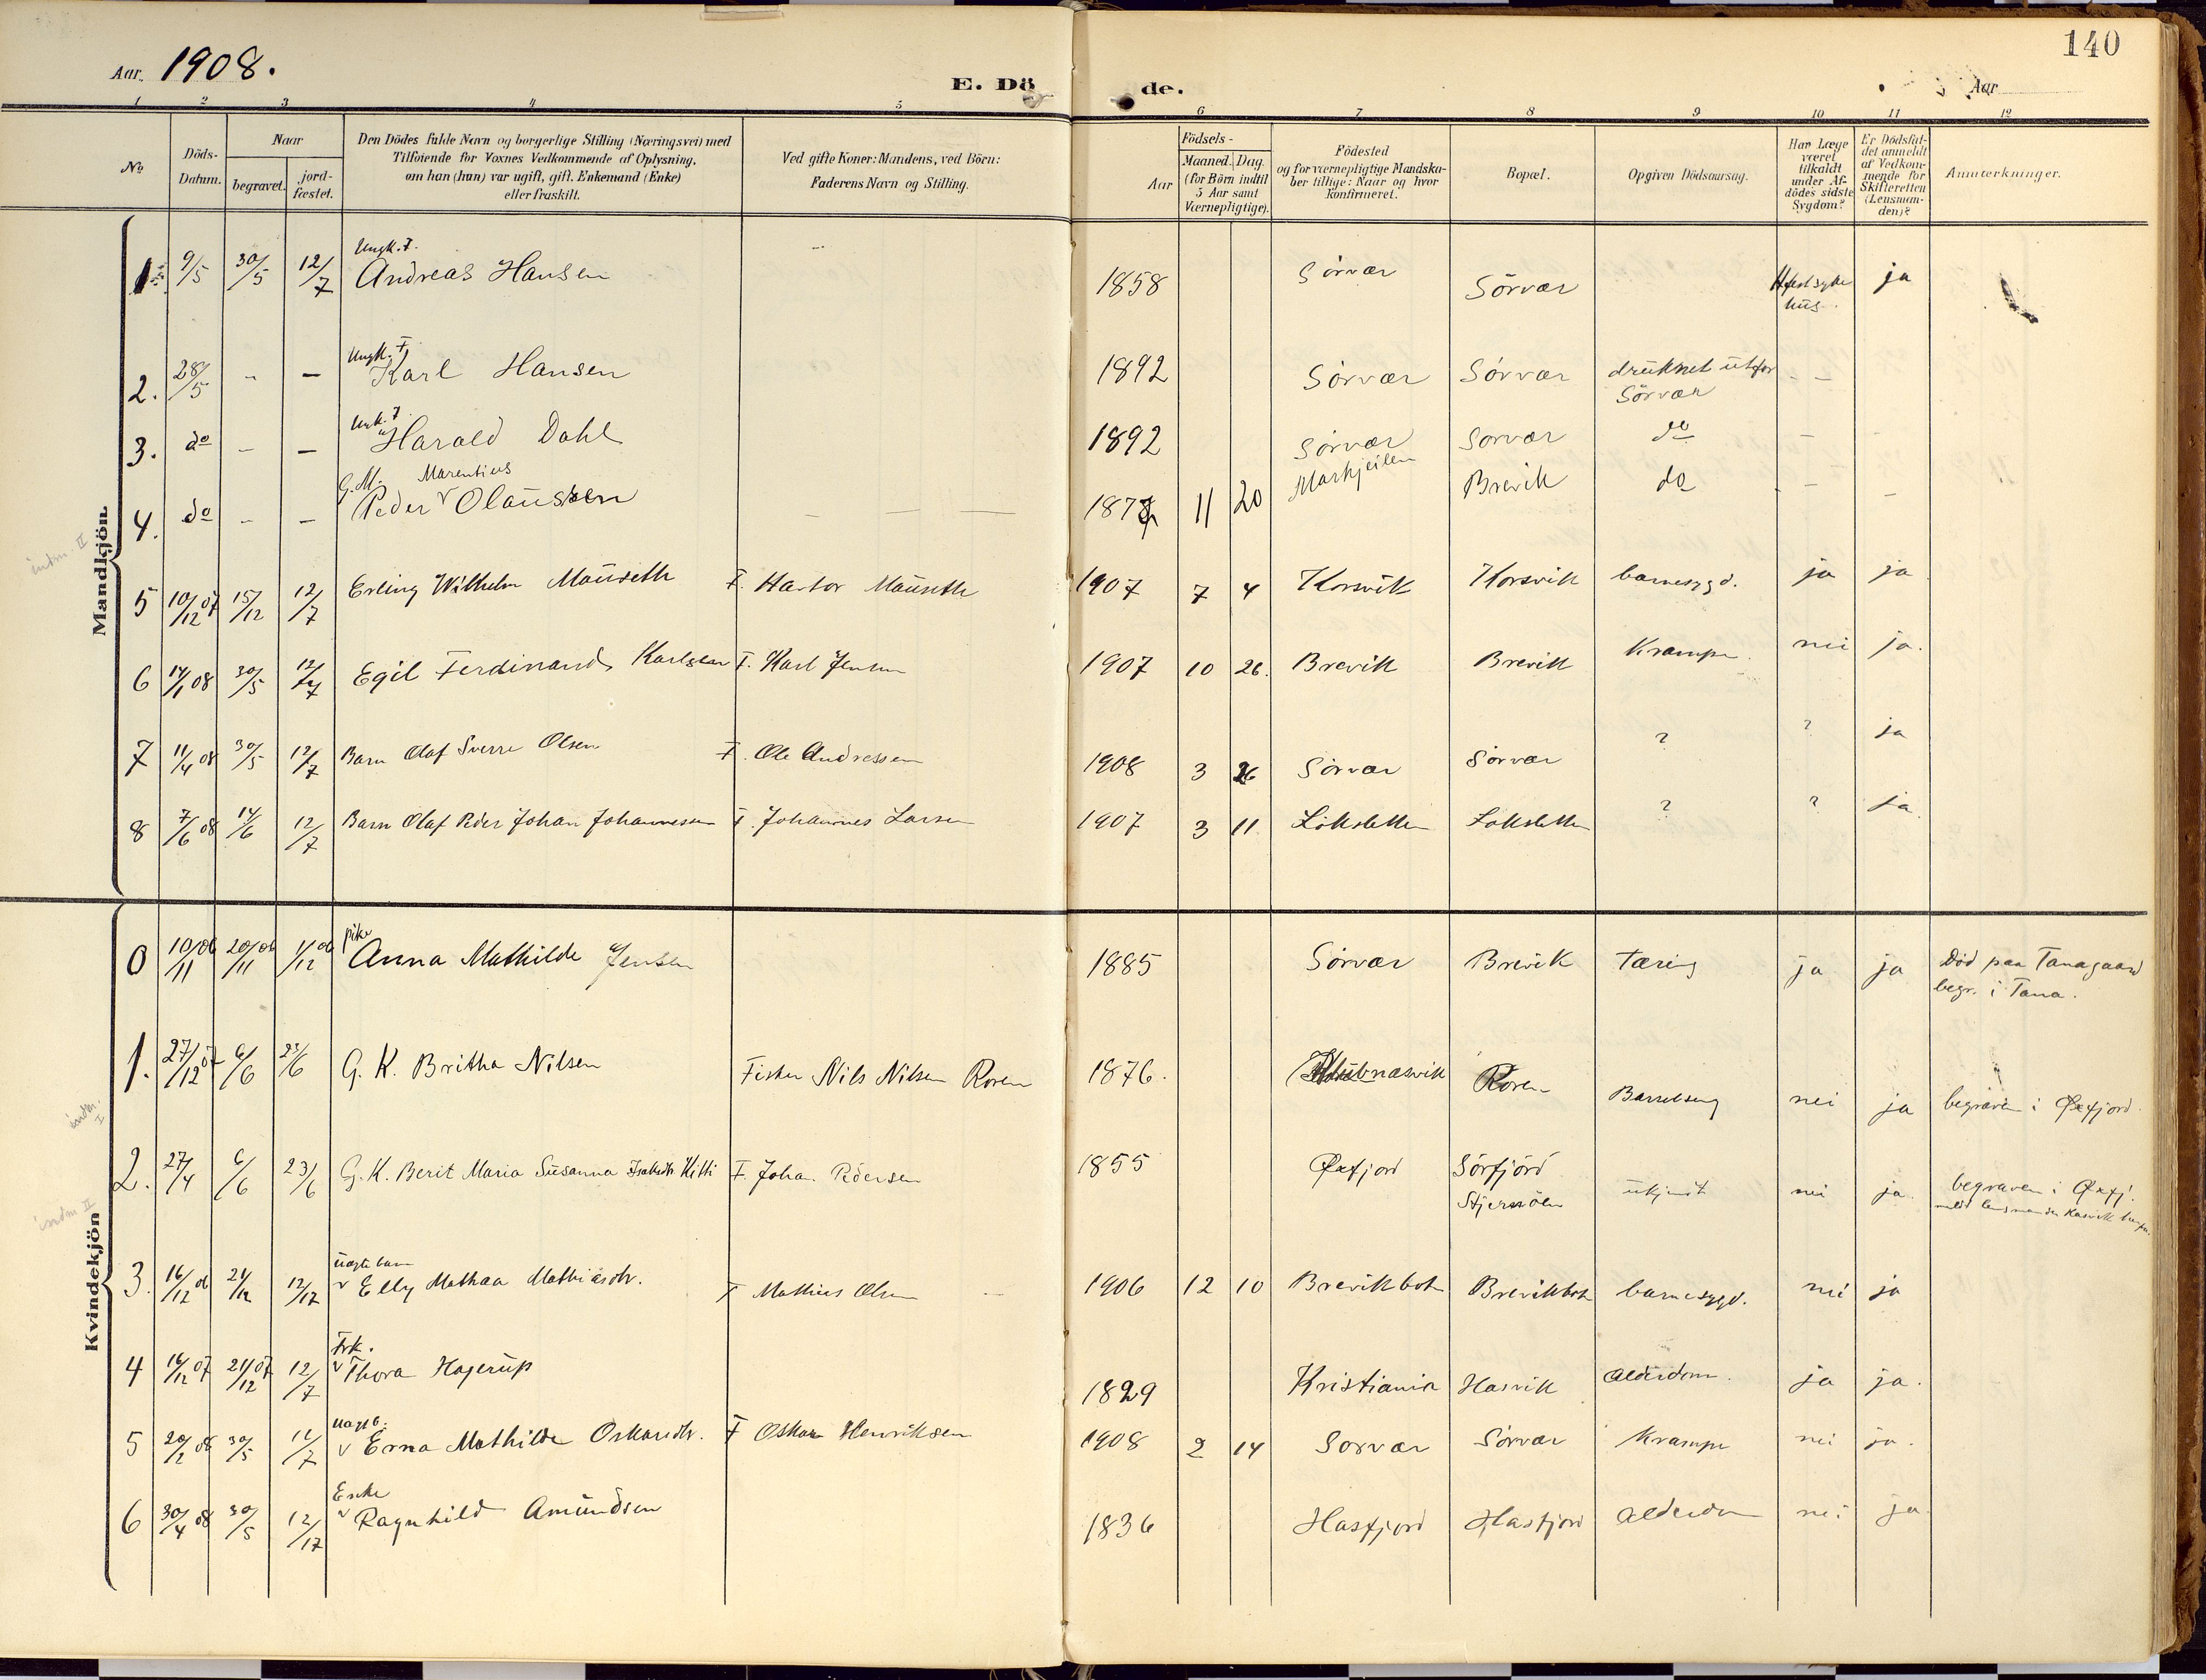 140
Aar. 1908.
E. Dö de.
Aar
1 2 3 4 5 6 7 8 9 10 11 12
No
Döds-Datum.
Naar
begravet.
jord-fæstet.
Den Dödes fulde Navn og borgerlige Stilling (Næringsvei) med
Tilföiende for Voxnes Vedkommende af Oplysning,
om han (hun) var ugift, gift, Enkemand (Enke)
eller fraskilt.
Ved gifte Koner: Mandens, ved Börn:
Faderens Navn og Stilling.
Födsels-
Aar
Maaned. Dag.
(for Börn indtil
5 Aar samt
Værnepligtige).
Födested
og for værnepligtige Mandska-
ber tillige: Naar og hvor
konfirmeret.
Bopæl.
Opgiven Dödsaarsag.
Har Læge
været
tilkaldt
under Af-
dödes sidste
Sygdom?
Er Dödsfal-
det anmeldt
af Vedkom-
mende for
Skifteretten
(Lensman-
den)?
Anmærkninger.
Mandkjön.
1 9/5 30/5 12/7 Ungk. F. Andreas Hansen 1858 Sörvær Sörvær ja
2. 28/5 - - Ungk. F Karl Hansen 1892 Sörvær Sörvær drüknet ütfor Sörvær - -
3. do - - Ungk. F. Harald Dahl 1892 Sörvær Sorvær do - -
4. do - - G. M. Peder Marentius Olaüssen 187 11 20 Brevik do - -
5 10/12 07 15/12 12/7 Erling Wilhelm Maüseth F. Maüseth 1907 7 4 Korsvik Korsvik barnesygd. ja ja
6 14/1 08 30/5 12/7 Egil Ferdinand Karlsen F. Karl Jensen 1907 10 26. Brevik Brevik Krampe nei ja.
7 11/4 08 30/5 12/7 Barn Olaf Sverre Olsen F. Ole Andressen 1908 3 26 Sörvær Sörvær ? ? ja
8 7/6 08 14/6 12/7 Barn Olaf Peder Johan Johannessen F. Johannes Larsen 1907 3 11 ? ? ja.
Kvindekjön
0 10/11 06 20/11 06 1/12 06 pike Anna Mathilde Jensen 1885 Sörvær Brevik Tæring ja ja Död paa Tanagaard
begr. i Tana.
1. 27/12 07 6/6 23/6 G. K. Britha Nilsen Fisker Nils Nilsen Roren 1876. Roren Barselseng nei ja begraven i Øxfjord.
2. 27/4 6/6 23/6 G. K. Berit Maria Süsanna Kitti F. Johan Pedersen 1855 Øxfjord Sörfjord Stjernöen ükjendt nei ja. begraven i Øxfj.
3. 16/12 06 21/12 12/17 üægte barn Elly Mathea Mathiasdtr. F Mathias Olsen 1906 12 10 Brevikbotn Brevikbotn barnesygd. nei ja
4 16/12 07 21/12 07 12/7 Frk. Thora Hagerüp 1829 Kristiania Hasvik Alderdom. ja ja.
5 20/2 08 30/5 12/7 uægt b. Erna Mathilde Oskarsdtr. F Oskar Henriksen 1908 2 14 Sorvær Sörvær Krampe nei ja.
6 30/4 08 30/5 12/17 Enke Ragnhild Amündsen 1836 Hasfjord Hasfjord Alderdom nei ja